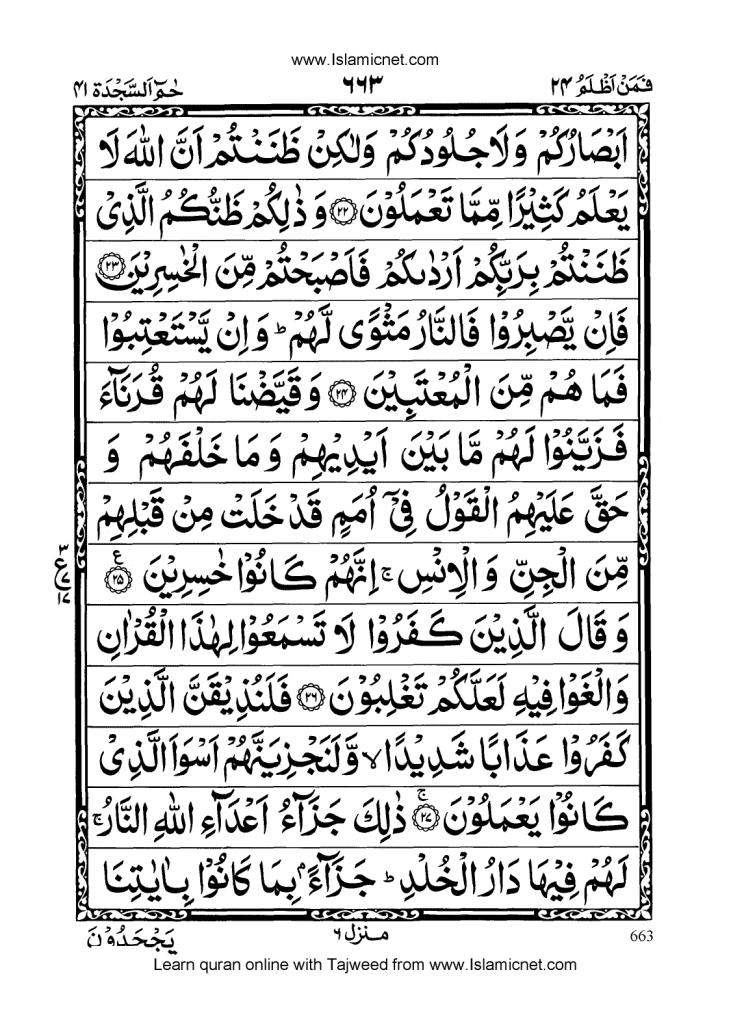 www.Islamicnet.com
فَمَنْ اَظْلَمُ ۲۴ ۶۶۳ حٰمٓ اَلسَّجْدَة ۴۱
اَبْصَارُكُمْ وَلَا جُلُوْدُكُمْ وَلٰكِنْ ظَنَنْتُمْ اَنَّ اللّٰهَ لَا
يَعْلَمُ كَثِيْرًا مِّمَّا تَعْمَلُوْنَ ﴿۲۲﴾ وَ ذٰلِكُمْ ظَنُّكُمُ الَّذِىْ
ظَنَنْتُمْ بِرَبِّكُمْ اَرْدٰىكُمْ فَاَصْبَحْتُمْ مِّنَ الْخٰسِرِيْنَ ﴿۲۳﴾
فَاِنْ يَّصْبِرُوْا فَالنَّارُ مَثْوًى لَّهُمْ ؕ وَ اِنْ يَّسْتَعْتِبُوْا
فَمَا هُمْ مِّنَ الْمُعْتَبِيْنَ ﴿۲۴﴾ وَ قَيَّضْنَا لَهُمْ قُرَنَآءَ
فَزَيَّنُوْا لَهُمْ مَّا بَيْنَ اَيْدِيْهِمْ وَ مَا خَلْفَهُمْ وَ
حَقَّ عَلَيْهِمُ الْقَوْلُ فِىْٓ اُمَمٍ قَدْ خَلَتْ مِنْ قَبْلِهِمْ
مِّنَ الْجِنِّ وَ الْاِنْسِ ۚ اِنَّهُمْ كَانُوْا خٰسِرِيْنَ ﴿۲۵﴾ ع
وَ قَالَ الَّذِيْنَ كَفَرُوْا لَا تَسْمَعُوْا لِهٰذَا الْقُرْاٰنِ
وَالْغَوْا فِيْهِ لَعَلَّكُمْ تَغْلِبُوْنَ ﴿۲۶﴾ فَلَنُذِيْقَنَّ الَّذِيْنَ
كَفَرُوْا عَذَابًا شَدِيْدًا ۙ وَّ لَنَجْزِيَنَّهُمْ اَسْوَاَ الَّذِىْ
كَانُوْا يَعْمَلُوْنَ ﴿۲۷﴾ ۚ ذٰلِكَ جَزَآءُ اَعْدَآءِ اللّٰهِ النَّارُ ۚ
لَهُمْ فِيْهَا دَارُ الْخُلْدِ ؕ جَزَآءًۢ بِمَا كَانُوْا بِاٰيٰتِنَا
۳ ع ۷ ۱۷
663 منزل ۶ يَجْحَدُوْنَ
Learn quran online with Tajweed from www.Islamicnet.com